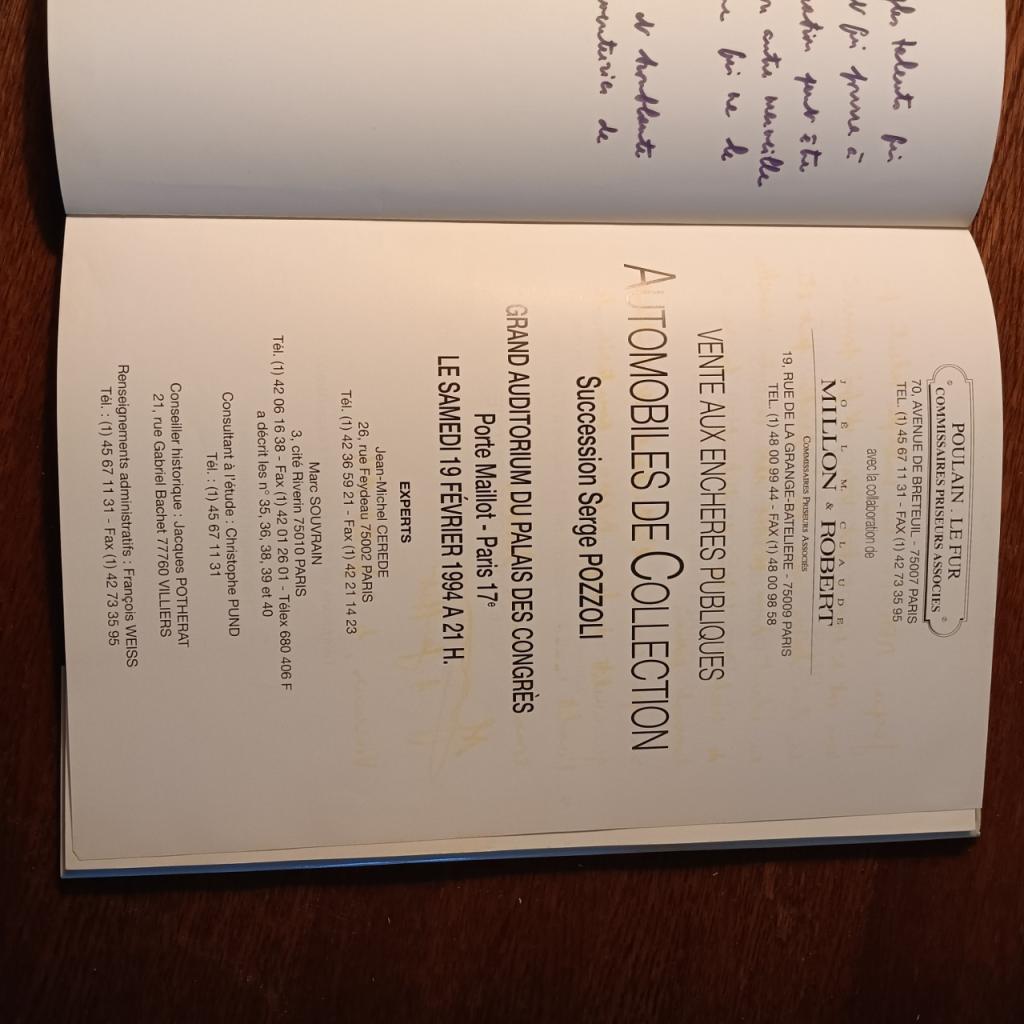 talents
à
peut être
autre merveille
de
et troublante
de
POULAIN . LE FUR
COMMISSAIRES PRISEURS ASSOCIES
70, AVENUE DE BRETEUIL - 75007 PARIS
TEL. (1) 45 67 11 31 - FAX (1) 42 73 35 95
avec la collaboration de
JOËL M. CLAUDE
MILLON & ROBERT
COMMISSAIRES PRISEURS ASSOCIÉS
19, RUE DE LA GRANGE-BATELIERE - 75009 PARIS
TEL. (1) 48 00 99 44 - FAX (1) 48 00 98 58
VENTE AUX ENCHÈRES PUBLIQUES
AUTOMOBILES DE COLLECTION
Succession Serge POZZOLI
GRAND AUDITORIUM DU PALAIS DES CONGRÈS
Porte Maillot - Paris 17e
LE SAMEDI 19 FÉVRIER 1994 A 21 H.
EXPERTS
Jean-Michel CEREDE
26, rue Feydeau 75002 PARIS
Tél. (1) 42 36 59 21 - Fax (1) 42 21 14 23
Marc SOUVRAIN
3, cité Riverin 75010 PARIS
Tél. (1) 42 06 16 38 - Fax (1) 42 01 26 01 - Télex 680 406 F
a décrit les n° 35, 36, 38, 39 et 40
Consultant à l'étude : Christophe PUND
Tél. : (1) 45 67 11 31
Conseiller historique : Jacques POTHERAT
21, rue Gabriel Bachet 77760 VILLIERS
Renseignements administratifs : François WEISS
Tél. : (1) 45 67 11 31 - Fax (1) 42 73 35 95